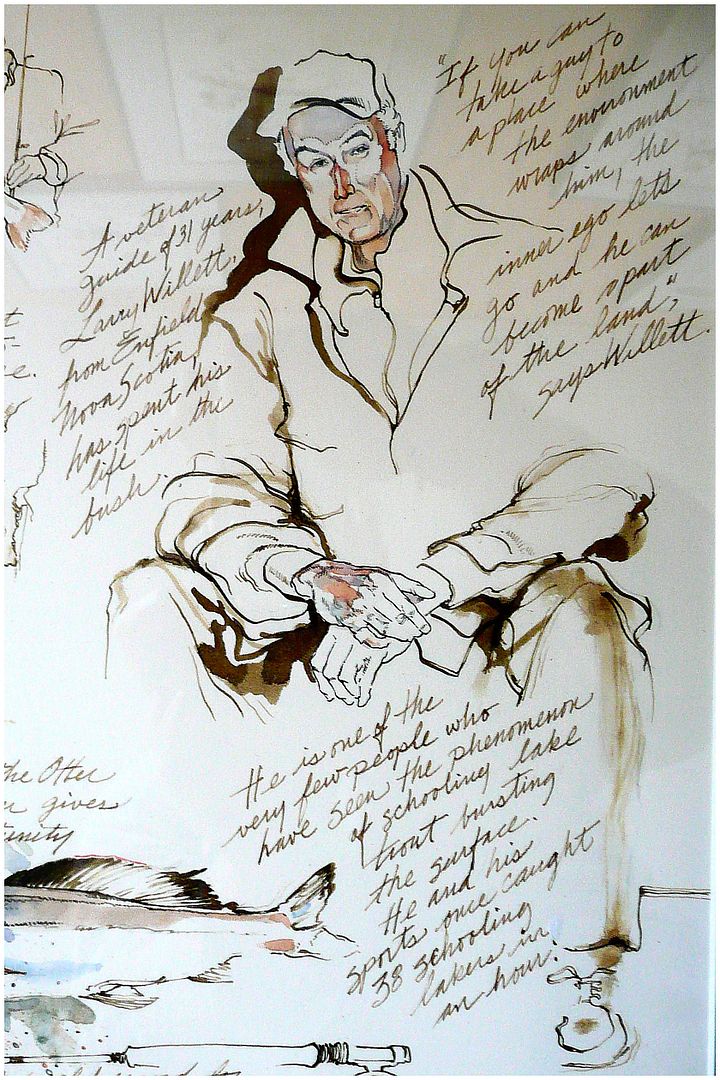 "If you can
take a guy to
a place where
the environment
wraps around
him, the
inner ego lets
go and he can
become a part
of the land",
says Willett.
A veteran
guide of 31 years,
Larry Willett,
from Enfield
Nova Scotia,
has spent his
life in the
bush.
He is one of the
very few people who
have seen the phenomenon
of schooling lake
trout bursting
the surface.
He and his
sports once caught
38 schooling
lakers in
an hour.
the Otter
gives